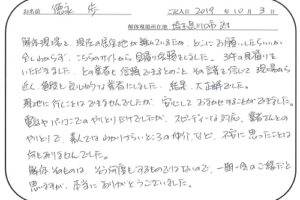 お名前 徳永 歩 ご記入日 2019年10月3日
解体現場住所 埼玉県川口市
解体現場と、現在の居住地が離れているため、どこにお願いしたらいいか
全くわからず、こちらのサイトから見積り依頼をしました。3件の見積りを
いただきました。どの業者も信頼できるとのこと、その言葉を信じて現場から
近く、値段もしっかりした業者にしました。結果、大正解でした。
現地に行くことはできませんでしたが、安心しておまかせすることができました。
電話やパソコンでのやりとりだけでしたが、スピーディーな対応、業者さんとの
やりとりで、素人ではわかりづらいところの仲介など、不安に思ったことは
何もありませんでした。
解体そのものは、そう何度もするものではないので、一期一会のご縁だと
思いますが、本当にありがとうございました。